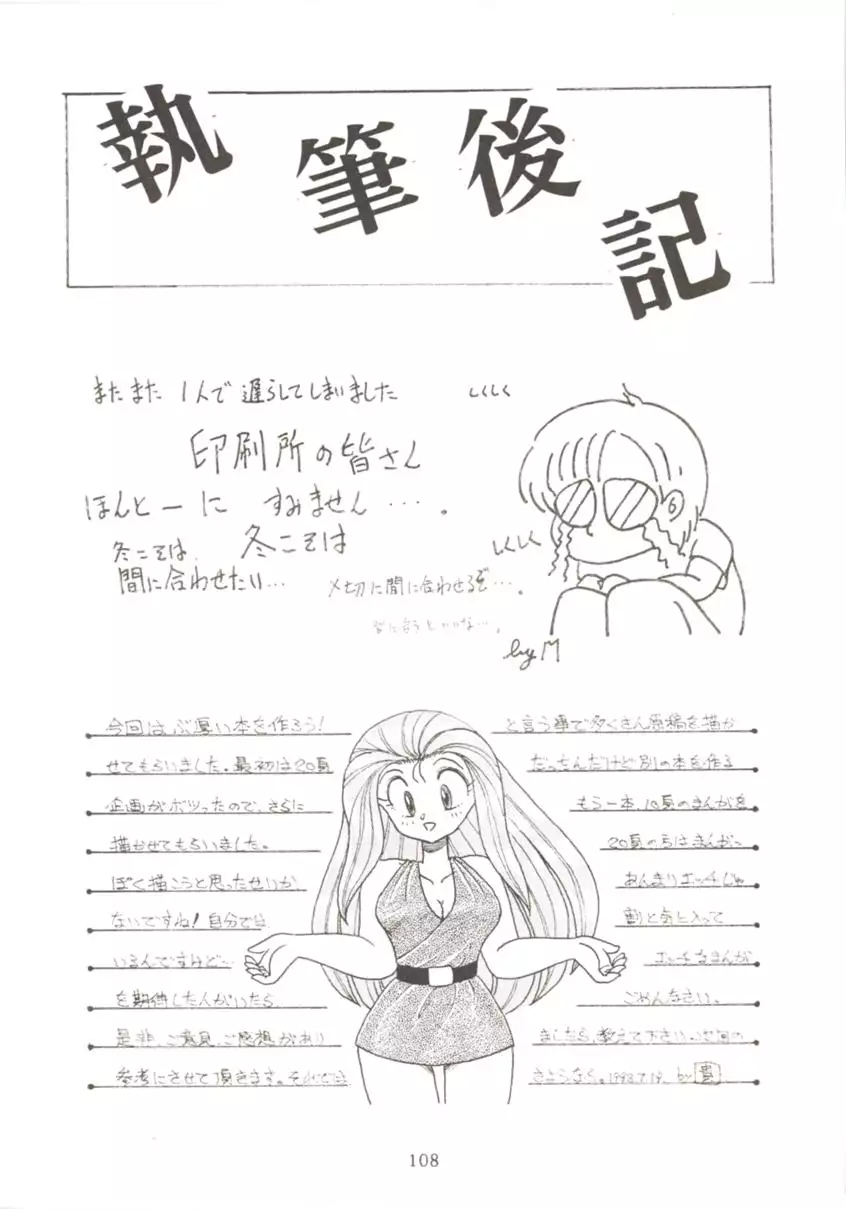 執筆後記
またまた 1人で遅らしてしまいました
しくしく
印刷所の皆さん
ほんとーに すみません…。
冬こそは 冬こそは
しくしく
間に合わせたい… 〆切に間に合わせるぞ…。
by M
今回はぶ厚い本を作ろう! と言う事で多くさん原稿を描か
せてもらいました。最初は20頁 だったんだけど別の本を作る
企画がボツったので、さらに もう一本、10頁のまんがを
描かせてもらいました。 20頁の方はまんがっ
ぽく描こうと思ったせいか あんまりエッチじゃ
ないですね!自分では 割と気に入って
いるんですけど… エッチなまんが
を期待した人がいたら ごめんなさい。
是非、ご意見、ご感想があり ましたら、教えて下さい。次回の
参考にさせて頂きます。それでは さようなら。1993.7.19. by 貴
108